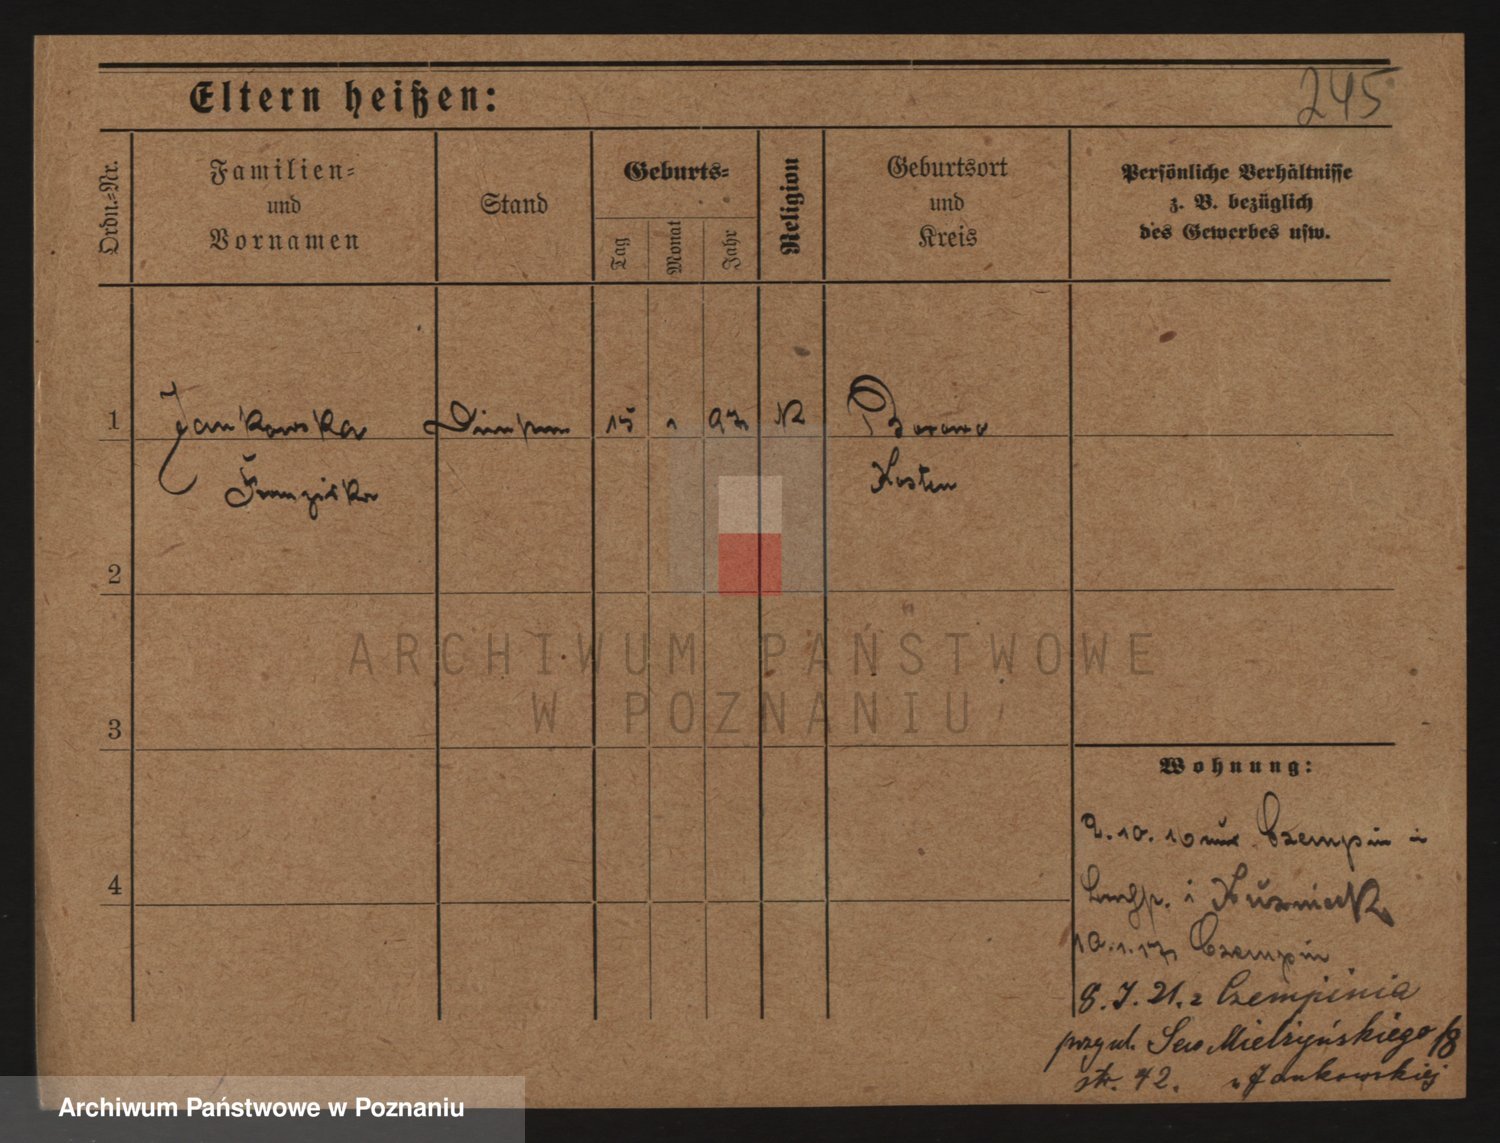 245
Eltern heißen:
Ordn.-Nr.
Familien-
und
Vornamen
Stand
Geburts-
Tag
Monat
Jahr
Religion
Geburtsort
und
Kreis
Persönliche Verhältnisse
z. B. bezüglich
des Gewerbes usw.
1
Jankowska
15 1 97 K
Borowo
Franziska
Kosten
2
3
4
ARCHIWUM PAŃSTWOWE
W POZNANIU
Wohnung:
2.10.16 Czempin
10.1.17 Czempin
8. I. 21. z Czempinia
przy ul. Sew Mielżyńskiego
str. 42. u Jankowskiej
Archiwum Państwowe w Poznaniu